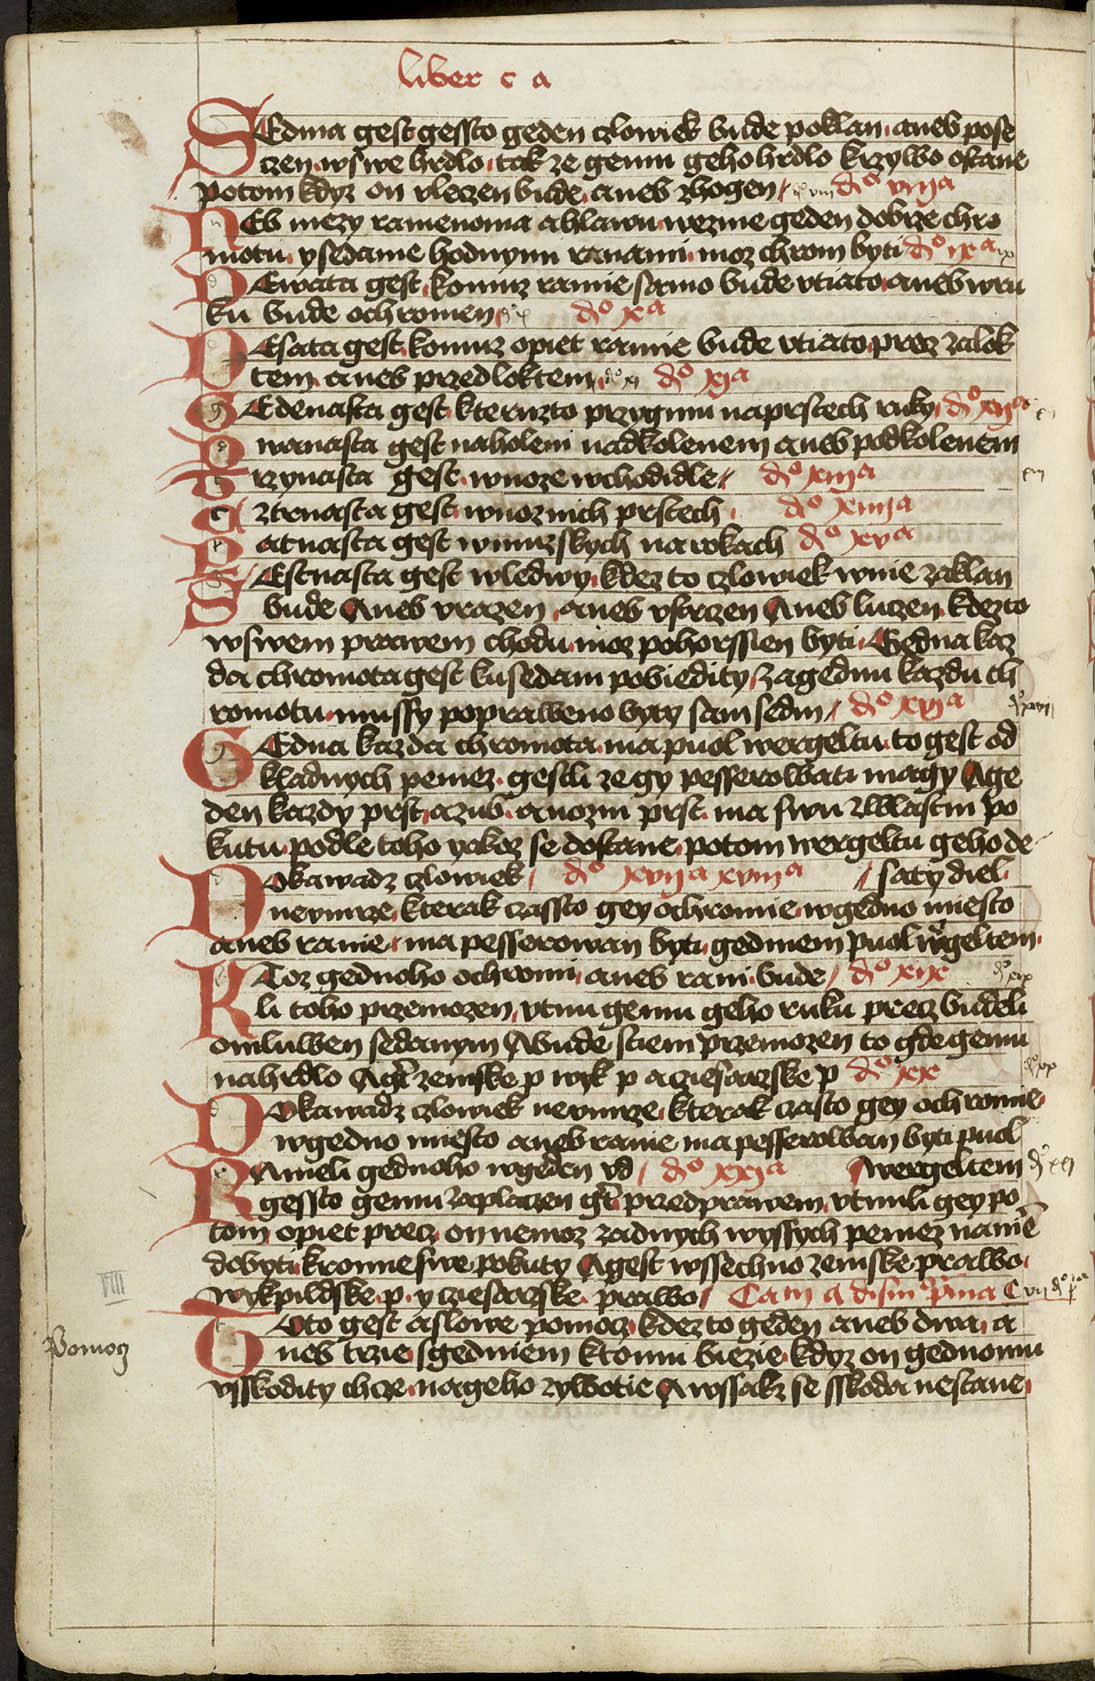 liber c a
SEdma gest gessto geden czlowiek bude poklan aneb pose
czen wswe hrdlo tak ze gemu geho hrdlo krzywo ostane
potom kdyz on vleczen bude aneb zhogen d° viii d° viii a
NEb mezy ramenoma a hlawu wezme geden dobrze chro
motu y sedanie hodnymi ranami moz chrom byti d° ix a ix
DEwata gest komuz ramie samo bude vtiato aneb wru
ku bude ochromen d° x d° x a
DEsata gest komuz opiet ramie bude vtiato precz za lok
tem aneb przed loktem d° xi d° xi a
GEdenasta gest kteruzto przygmu na prstech ruky d° xii a xii
Dwanasta gest na holeni nad kolenem aneb pod kolenem
Trzynasta gest wnoze wchodidle d° xiii a xiii
Cztrnasta gest wnoznich prstech d° xiiii a
Patnasta gest wmuzskych narokach d° xv a
SEstnasta gest wledwy kdez to czlowiek wnie zaklan
bude Aneb vrazen aneb vstrczen Aneb luczen kdezto
wswem prawem chodu moz pohorssien byti Gedna kaz
da chromota gest ku sedani powiedity za gednu kazdu ch
romotu mussy popraweno byty sam sedm d° xvi a d° xvii
GEdna kazda chromota ma puol wergeltu to gest od
kladnych peniez gestli ze gy pesserowati magy A ge
den kazdy prst a zub a nozni prst ma swu zwlastni po
kutu podle toho yakoz se dostane potom wergeltu geho de
saty diel
DOkawadz czlowiek d° xvii a xviii a
neumrze kterak czassto gey ochromie wgedno miesto
aneb ranie ma pesserowan byti gedniem puol wergeltem
KToz gednoho ochromi aneb rani bude d° xix d° xix
li toho przemozen vtnu gemu geho ruku precz budeli
omluwen sedanym A bude sciem przemozen to gde gemu
na hrdlo Agt zemske p wyk p a cziesarzske p d° xx d° xx
DOkawadz czlowiek neumrze kterak czasto gey ochromie
wgedno miesto aneb ranie ma pesserowan byti puol
wergeltem d° xxi
RAnieli gednoho wgeden vd d° xxi a
gessto gemu zaplaczen gt przed prawem vtnuli gey po
tom opiet precz on nemoz zadnych wyssych peniez na nie
dobyti kromie swe pokuty A gest wssechno zemske prawo
wykpildske p y cziesarzske prawo Cam a disti prima C vii d° p a
TOto gest a slowe pomocz kdez to geden aneb dwa a
neb trzie s gedniem k tomu biezie kdyz on gednomu
vsskodity chcze na geho zywotie A wssakz se sskoda nestane
VIII
Pomocz